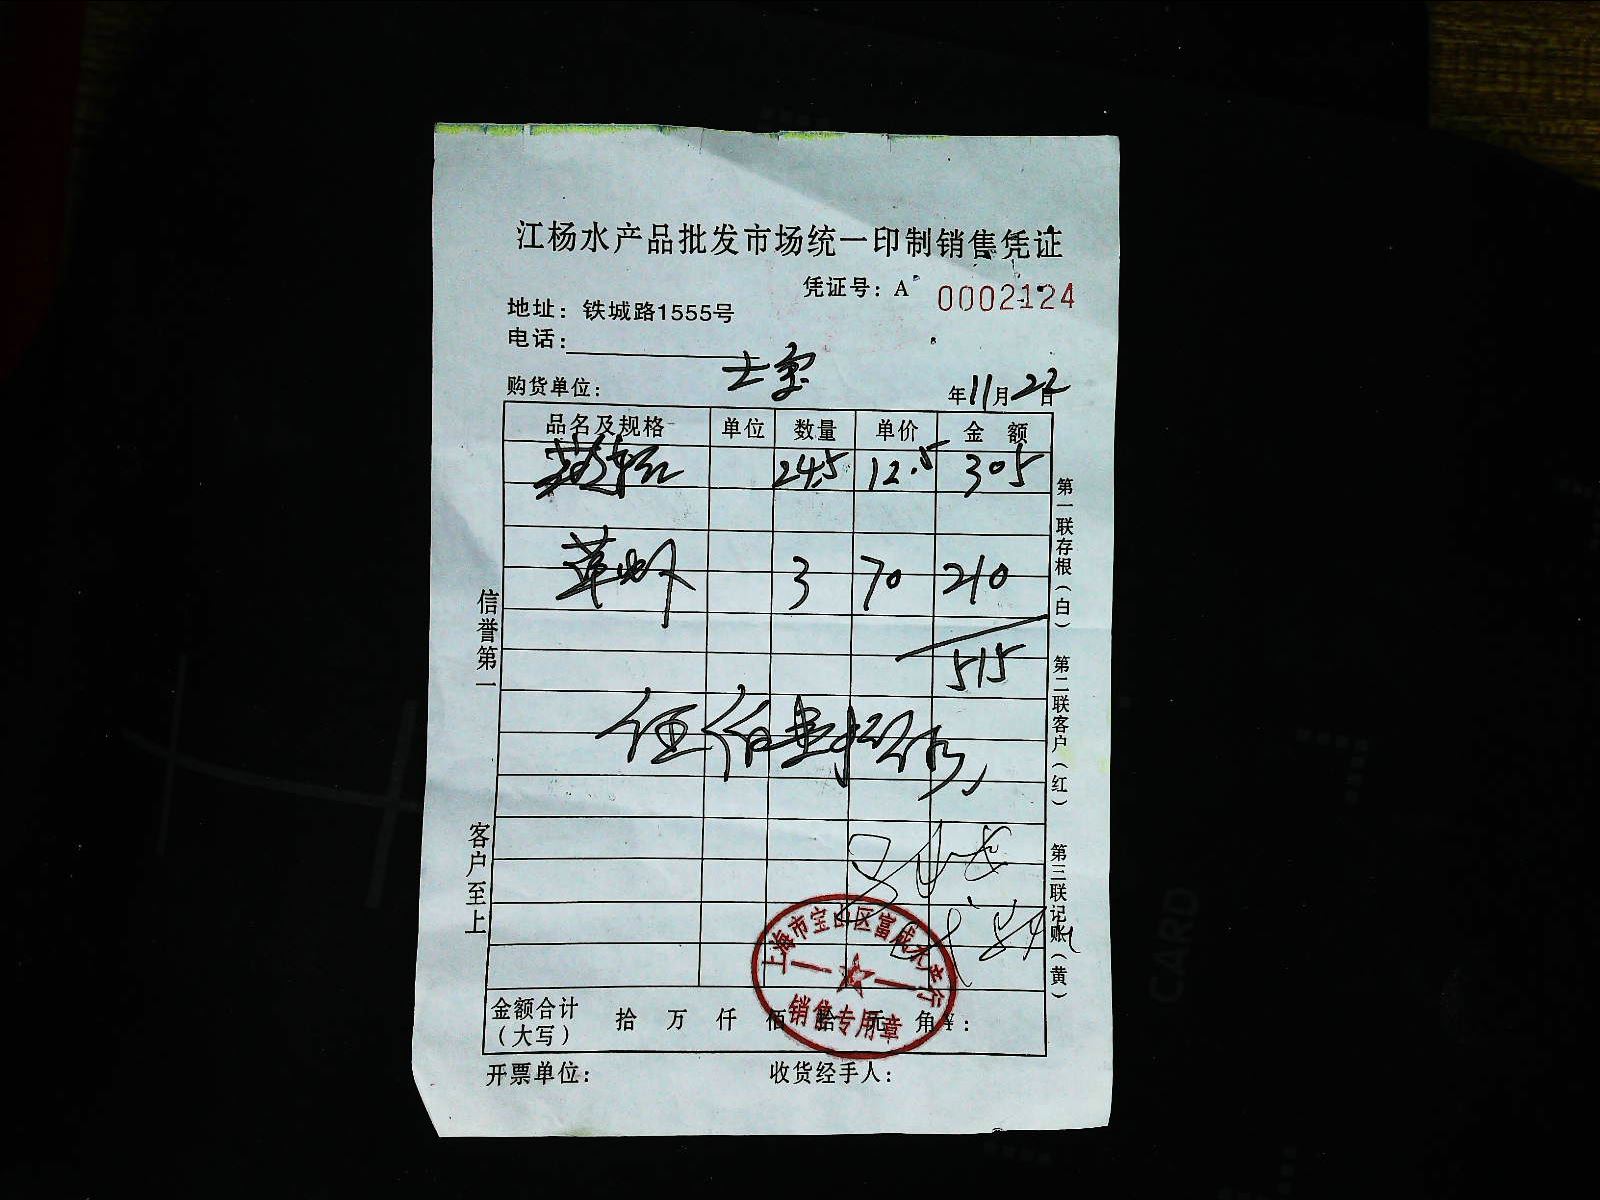 江杨水产品批发市场统一印制销售凭证
凭证号：A 0002124
地址：铁城路1555号
电话：
购货单位： 年11月22日
品名及规格 单位 数量 单价 金 额
24.5 12.5 305
草虾 3 70 210
515
伍佰壹拾伍元
信誉第一
客户至上
第一联存根（白） 第二联客户（红） 第三联记账（黄）
上海市宝山区富成水产行
销售专用章
金额合计（大写） 拾 万 仟 佰 拾 元 角 ¥：
开票单位： 收货经手人：